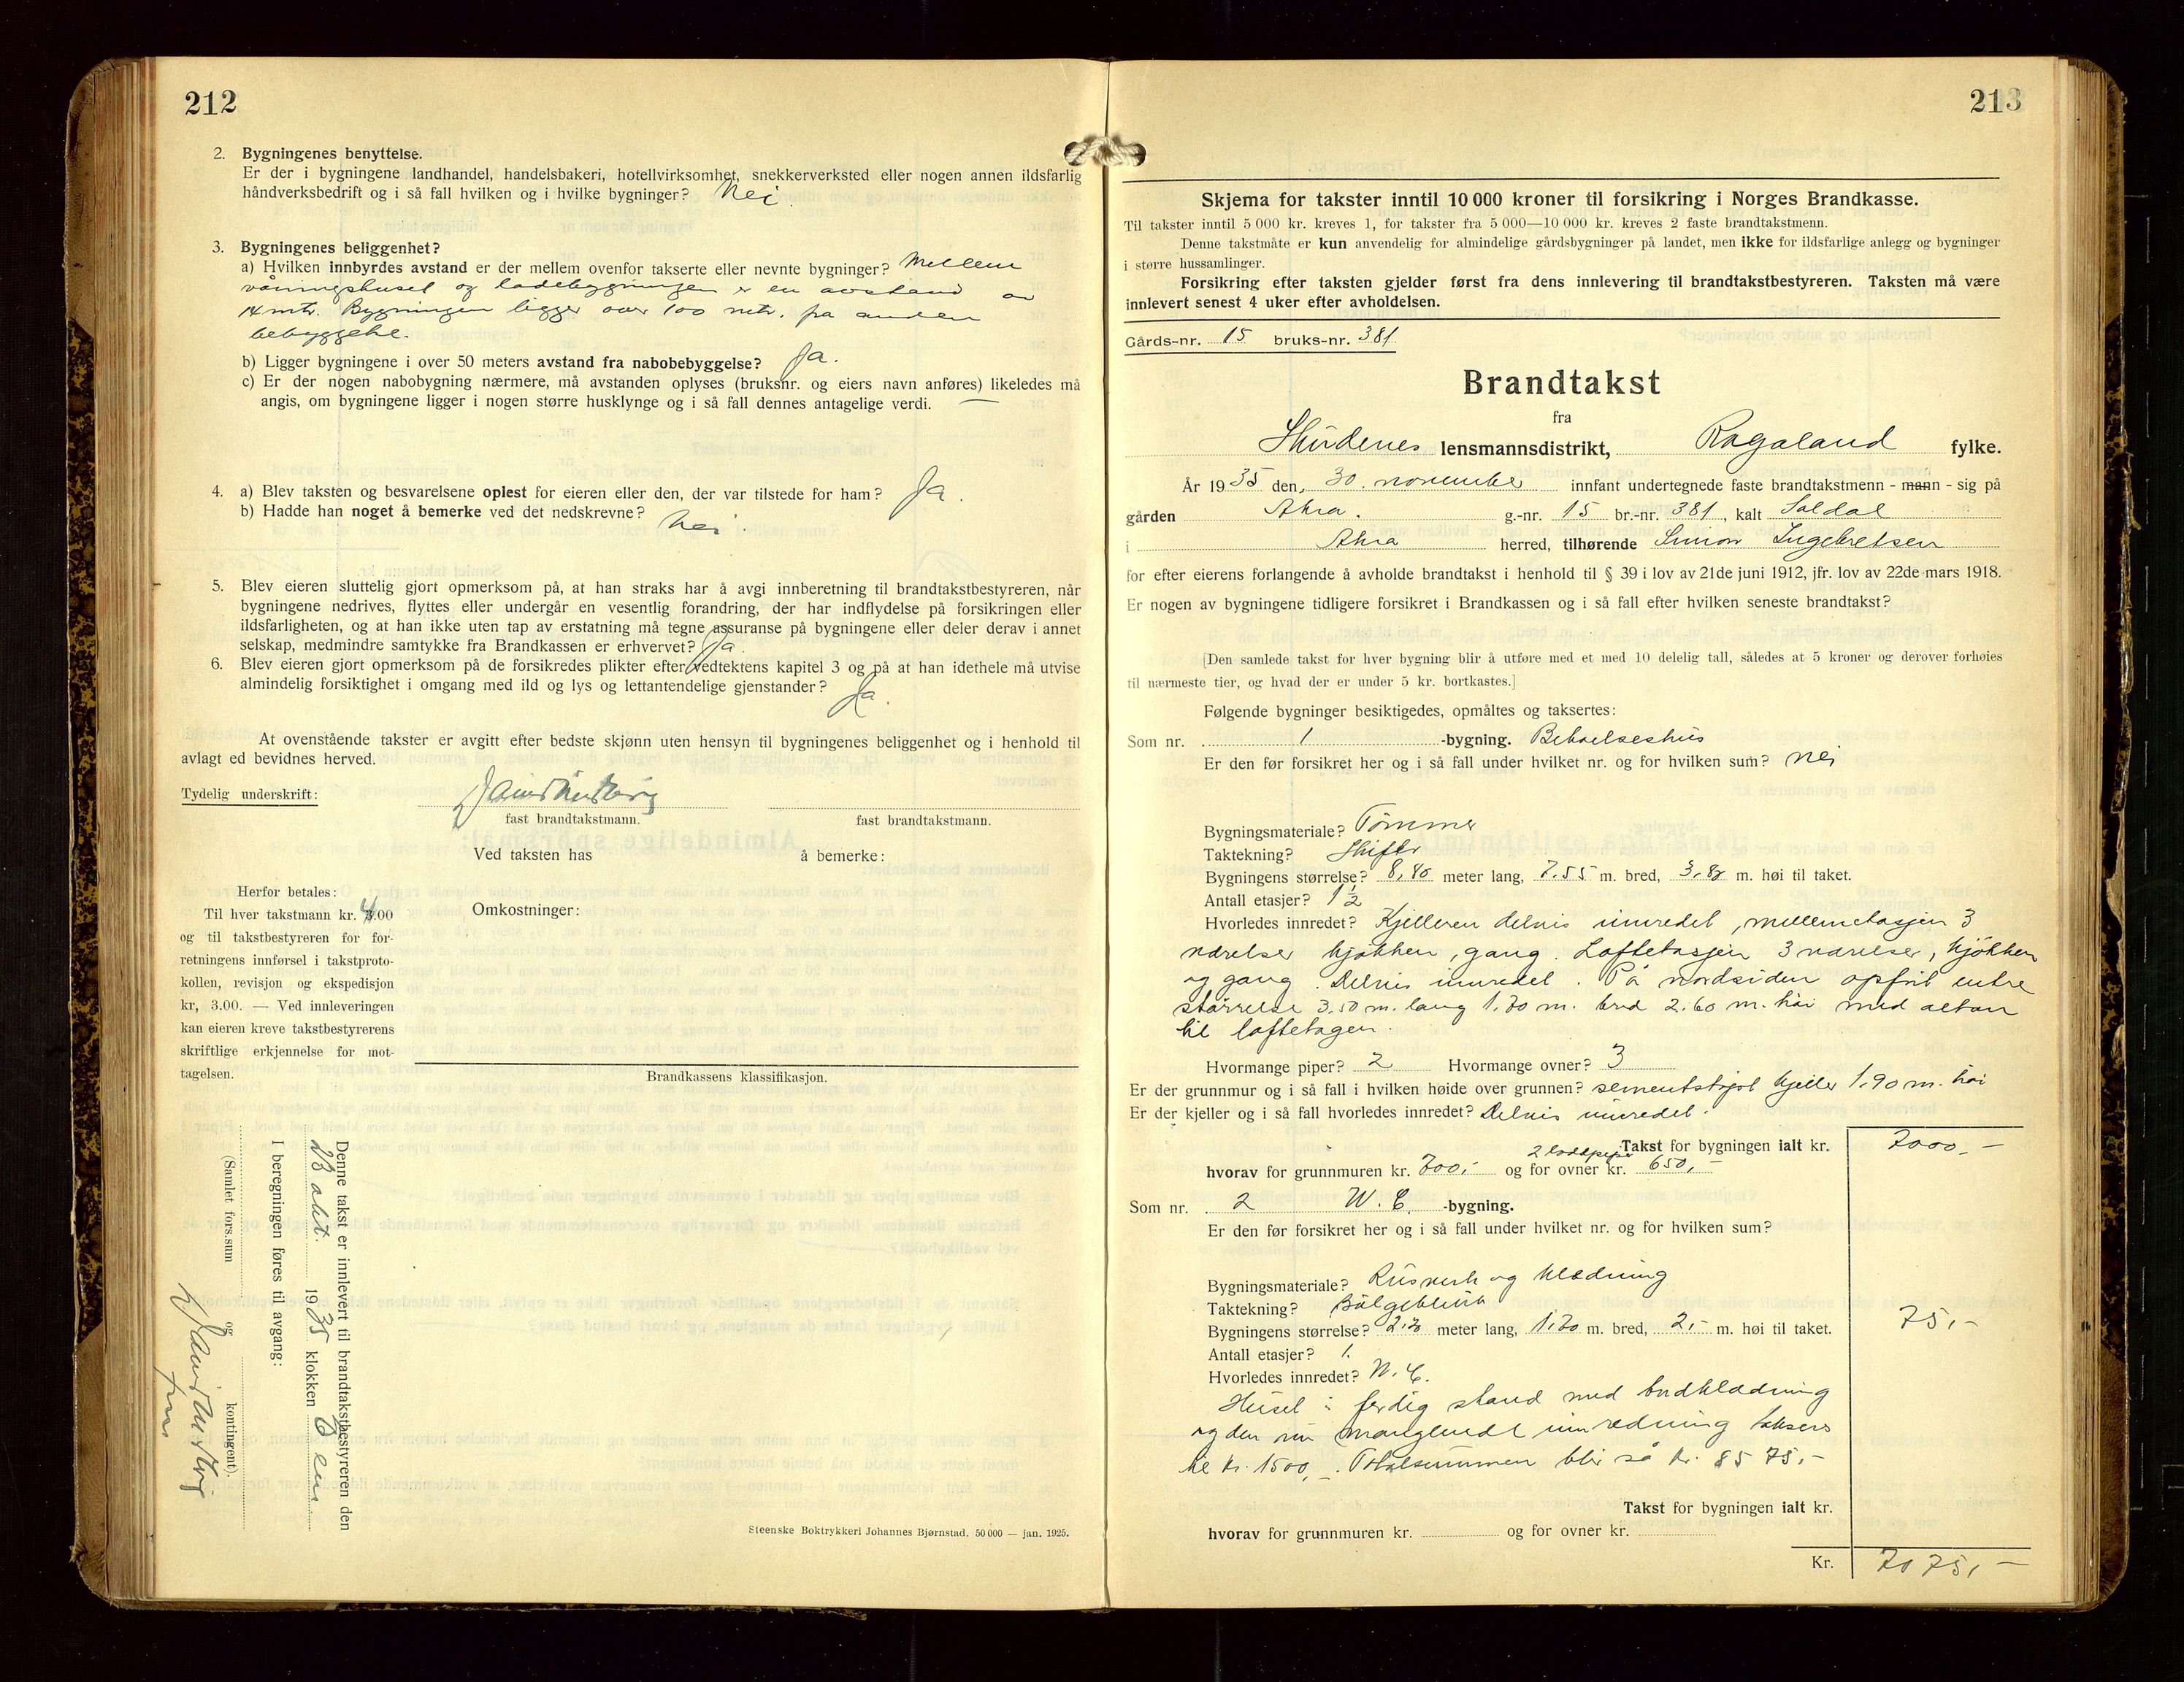 212
2. Bygningenes benyttelse.
Er der i bygningene landhandel, handelsbakeri, hotellvirksomhet, snekkerverksted eller nogen annen ildsfarlig
håndverksbedrift og i så fall hvilken og i hvilke bygninger? Nei
3. Bygningenes beliggenhet?
a) Hvilken innbyrdes avstand er der mellem ovenfor takserte eller nevnte bygninger? Mellem
våningshuset og ladebygningen er en avstand av
14 mtr. Bygningen ligger over 100 mtr. fra anden
bebyggelse.
b) Ligger bygningene i over 50 meters avstand fra nabobebyggelse? Ja.
c) Er der nogen nabobygning nærmere, må avstanden oplyses (bruksnr. og eiers navn anføres) likeledes må
angis, om bygningene ligger i nogen større husklynge og i så fall dennes antagelige verdi. —
4. a) Blev taksten og besvarelsene oplest for eieren eller den, der var tilstede for ham? Ja.
b) Hadde han noget å bemerke ved det nedskrevne? Nei.
5. Blev eieren sluttelig gjort opmerksom på, at han straks har å avgi innberetning til brandtakstbestyreren, når
bygningene nedrives, flyttes eller undergår en vesentlig forandring, der har indflydelse på forsikringen eller
ildsfarligheten, og at han ikke uten tap av erstatning må tegne assuranse på bygningene eller deler derav i annet
selskap, medmindre samtykke fra Brandkassen er erhvervet? Ja.
6. Blev eieren gjort opmerksom på de forsikredes plikter efter vedtektens kapitel 3 og på at han idethele må utvise
almindelig forsiktighet i omgang med ild og lys og lettantendelige gjenstander? Ja.
At ovenstående takster er avgitt efter bedste skjønn uten hensyn til bygningenes beliggenhet og i henhold til
avlagt ed bevidnes herved.
Tydelig underskrift:
fast brandtakstmann. fast brandtakstmann.
Ved taksten has å bemerke:
Herfor betales:
Til hver takstmann kr. 4.00
og til takstbestyreren for for-
retningens innførsel i takstproto-
kollen, revisjon og ekspedisjon
kr, 3.00. — Ved innleveringen
kan eieren kreve takstbestyrerens
skriftlige erkjennelse for mot-
tagelsen.
Omkostninger:
Brandkassens klassifikasjon.
Denne takst er innlevert til brandtakstbestyreren den
1935 klokken
I beregningen føres til avgang:
(Samlet fors.sum og kontingent).
Steenske Boktrykkeri Johannes Bjørnstad. 50 000 — jan. 1925.
213
Skjema for takster inntil 10 000 kroner til forsikring i Norges Brandkasse.
Til takster inntil 5 000 kr. kreves 1, for takster fra 5 000—10 000 kr. kreves 2 faste brandtakstmenn.
Denne takstmåte er kun anvendelig for almindelige gårdsbygninger på landet, men ikke for ildsfarlige anlegg og bygninger
i større hussamlinger.
Forsikring efter taksten gjelder først fra dens innlevering til brandtakstbestyreren. Taksten må være
innlevert senest 4 uker efter avholdelsen.
Gårds-nr. 15 bruks-nr. 381
Brandtakst
fra
Skudenes lensmannsdistrikt, Rogaland fylke.
År 1935 den, 30. november innfant undertegnede faste brandtakstmenn - mann - sig på
gården Akra. g.-nr. 15 br.-nr. 381, kalt Soldal
i Akra herred, tilhørende Simon Ingebretsen
for efter eierens forlangende å avholde brandtakst i henhold til § 39 i lov av 21de juni 1912, jfr. lov av 22de mars 1918.
Er nogen av bygningene tidligere forsikret i Brandkassen og i så fall efter hvilken seneste brandtakst?
[Den samlede takst for hver bygning blir å utføre med et med 10 delelig tall, således at 5 kroner og derover forhøies
til nærmeste tier, og hvad der er under 5 kr. bortkastes.]
Følgende bygninger besiktigedes, opmåltes og taksertes:
Som nr. 1 -bygning. Beboelseshus
Er den før forsikret her og i så fall under hvilket nr. og for hvilken sum? nei
Bygningsmateriale? Tömmer
Taktekning? Skifer
Bygningens størrelse? 8,80 meter lang, 7.55 m. bred, 3,80 m. høi til taket.
Antall etasjer? 1 ½
Hvorledes innredet? Kjelleren delvis innredet, mellemetasjen 3
værelser kjökken, gang. Loftetasjen 3 værelser, kjökken
og gang. Delvis innredet. På nordsiden opfört entre
störrelse 3,50 m. lang 1.70 m. bred 2.60 m. höi med altan
til loftetagen.
Hvormange piper? 2 Hvormange ovner? 3
Er der grunnmur og i så fall i hvilken høide over grunnen? sementstöpt kjeller 1.90 m. höi
Er der kjeller og i så fall hvorledes innredet? Delvis innredet.
Takst for bygningen ialt kr. 7000,-
hvorav for grunnmuren kr. 700,- og for ovner kr. 650,-
Som nr. 2 W.C. -bygning.
Er den før forsikret her og i så fall under hvilket nr. og for hvilken sum?
Bygningsmateriale? Risverk og klædning
Taktekning? Bölgeblikk
Bygningens størrelse? 2,20 meter lang, 1.70 m. bred, 2,- m. høi til taket. 75,-
Antall etasjer? 1.
Hvorledes innredet? W.C.
Huset i ferdig stand med bordklædning
og den nu manglende innredning takseres
til kr. 1500,-. Totalsummen blir så kr. 8575,-
Takst for bygningen ialt kr.
hvorav for grunnmuren kr. og for ovner kr.
Kr. 7075,-